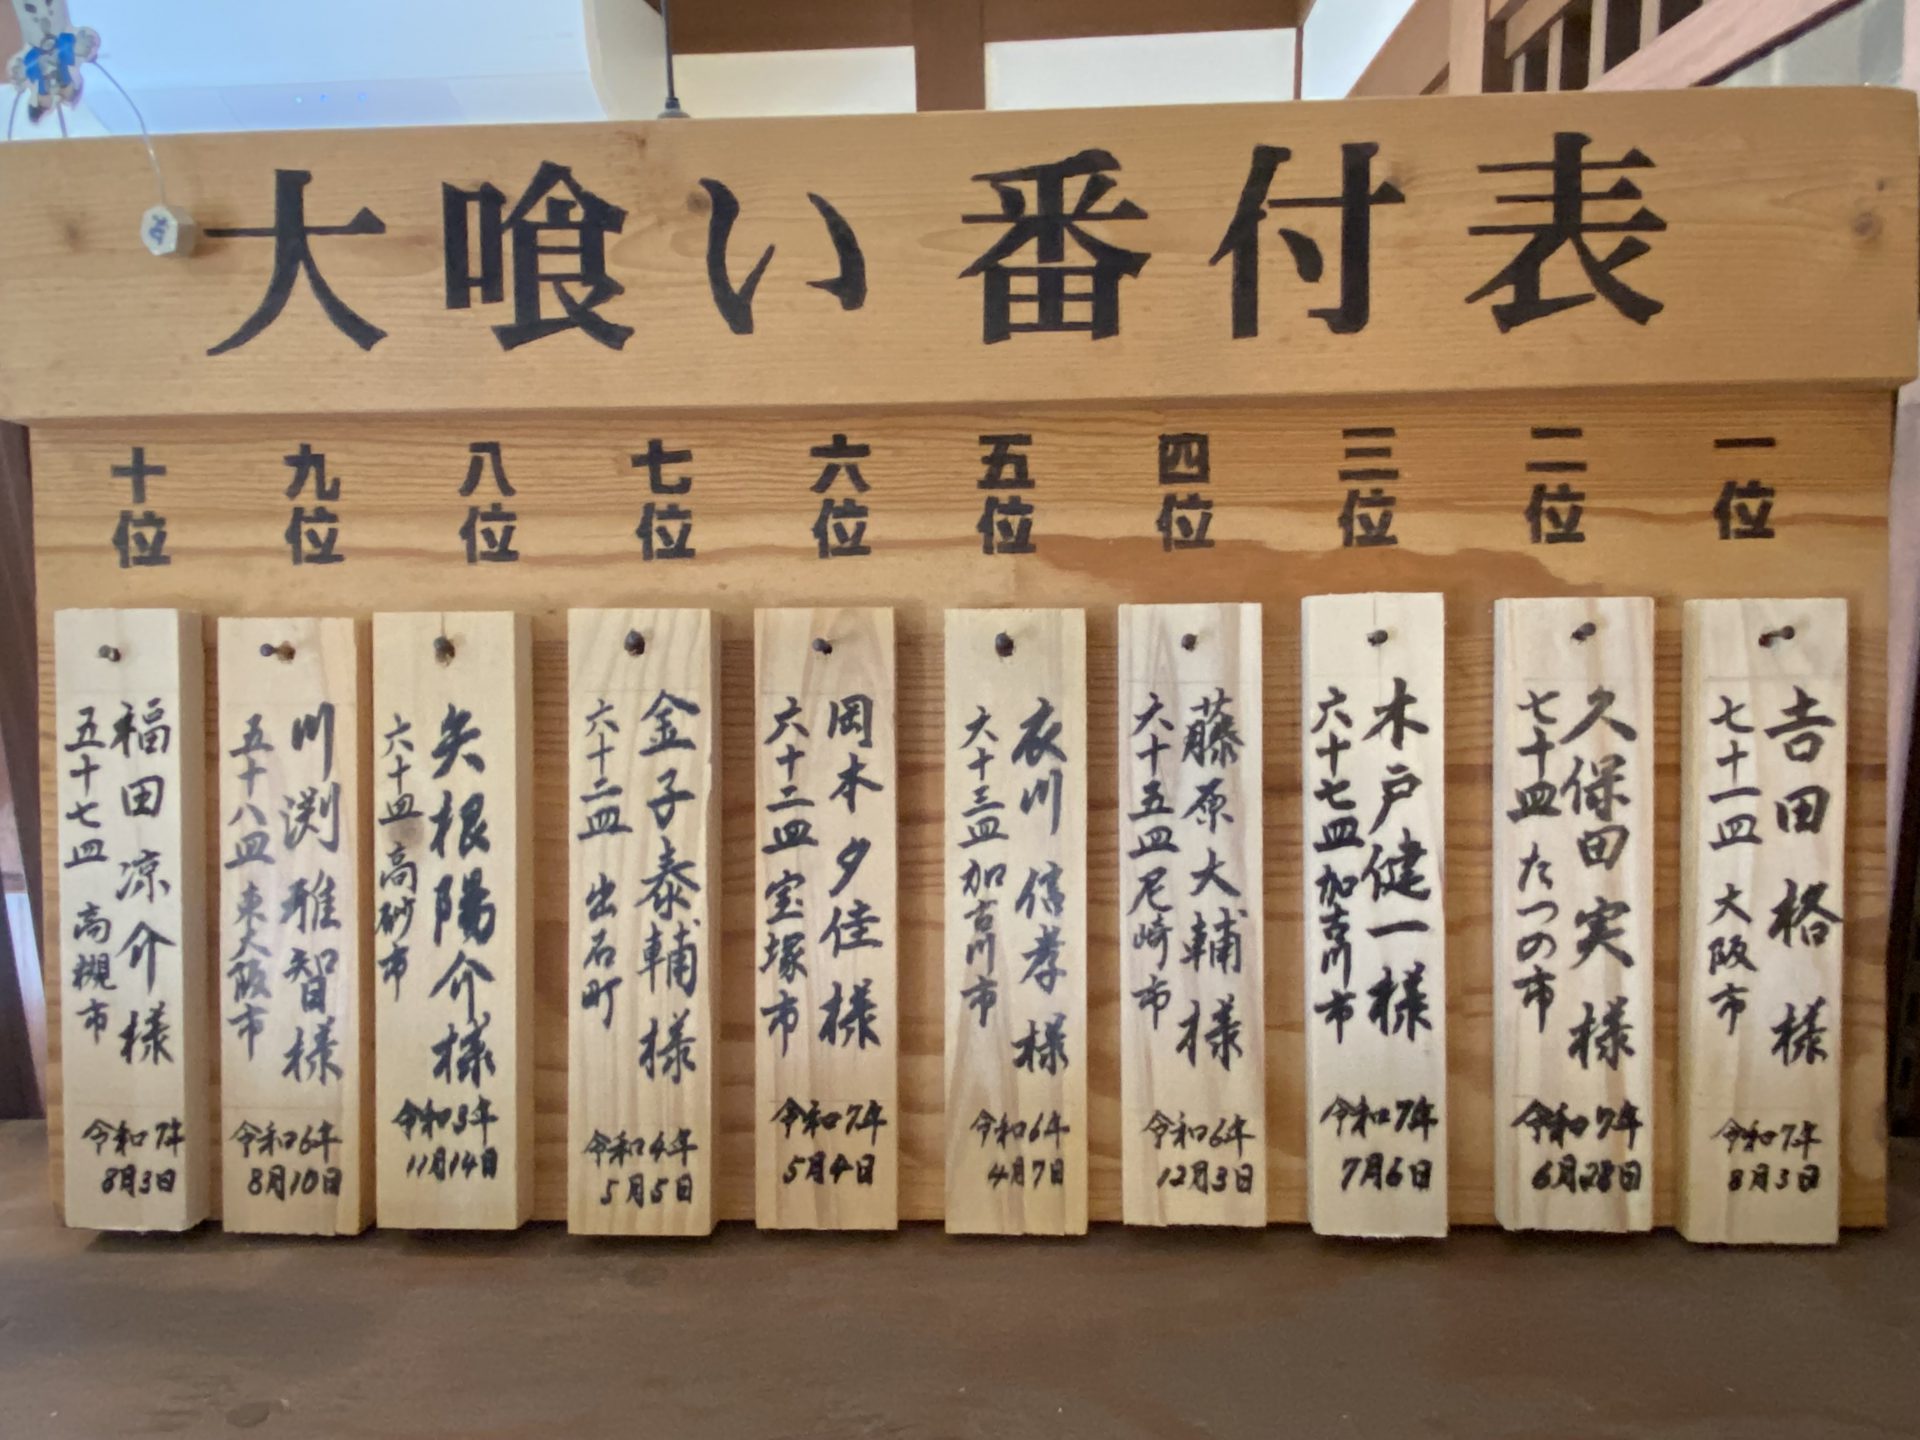 大喰い番付表
一位
吉田格様
七十一皿 大阪市
令和7年
8月3日
二位
久保田実様
七十皿 たつの市
令和7年
6月28日
三位
木戸健一様
六十七皿 加古川市
令和7年
7月6日
四位
藤原大輔様
六十五皿 尼崎市
令和6年
12月3日
五位
衣川信孝様
六十三皿 加古川市
令和6年
4月7日
六位
岡本夕佳様
六十二皿 宝塚市
令和7年
5月4日
七位
金子泰輔様
六十二皿 出石町
令和4年
5月5日
八位
矢根陽介様
六十皿 高砂市
令和3年
11月14日
九位
川渕雅智様
五十八皿 東大阪市
令和6年
8月10日
十位
福田凉介様
五十七皿 高槻市
令和7年
8月3日